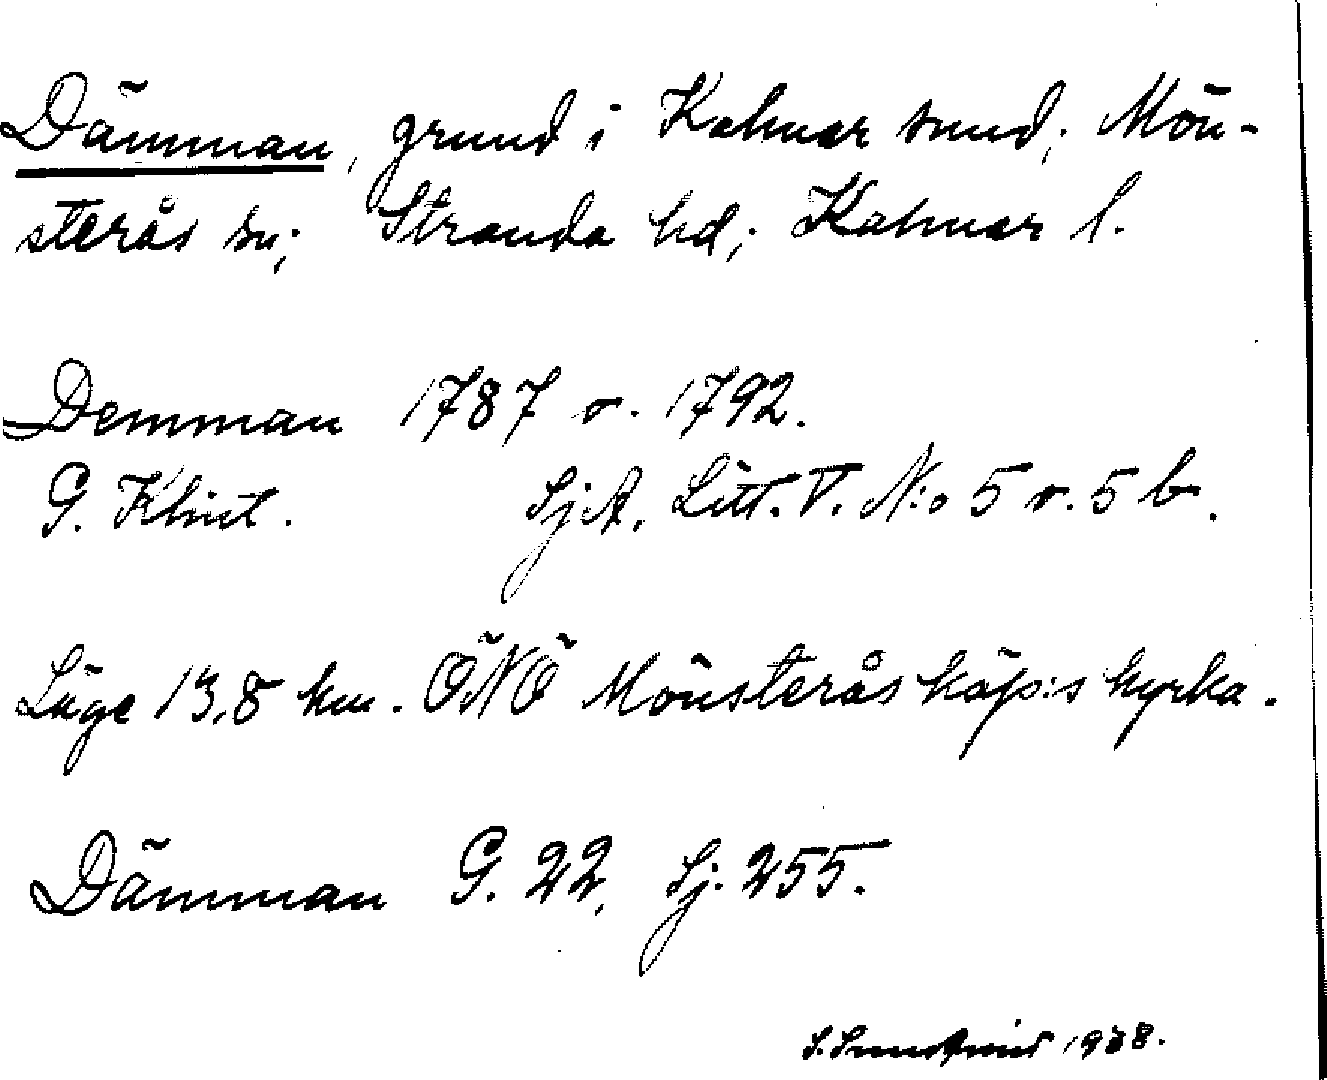 Dämman, grund i Kalmar sund; Mön-
sterås sn; Stranda hd; Kalmar l.
Demman 1787 o. 1792.
G. Klint. SjA. Litt. V. N:o 5 o. 5 b.
Läge 13,8 km. ÖNÖ Mönsterås köp:s kyrka.
Dämman G. 22, Sj. 255.
1938.